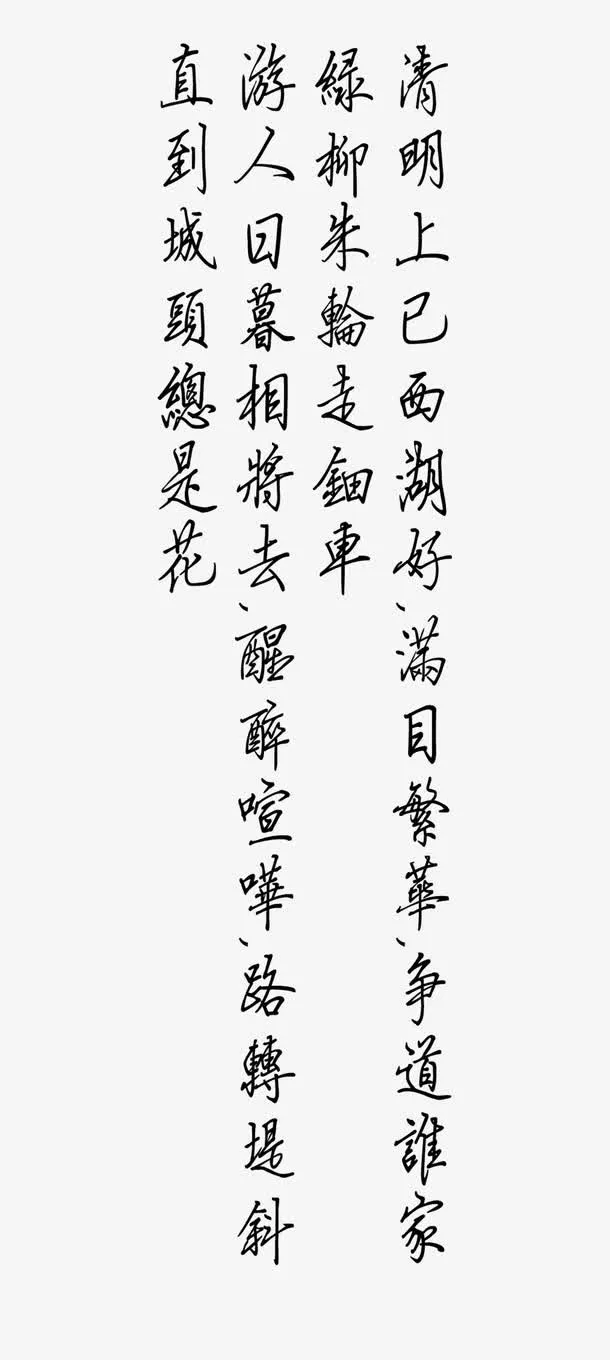 清明上已西湖好、滿目繁華、争道誰家
緑柳朱輪走鈿車
游人日暮相將去、醒醉喧嘩、路轉堤斜
直到城頭總是花